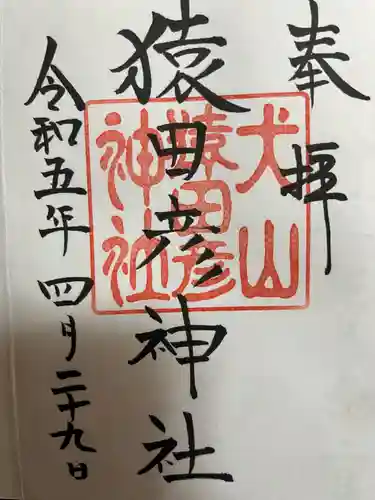 奉拝
猿田彦神社
令和五年四月二十九日
犬山
猿田彦
神社